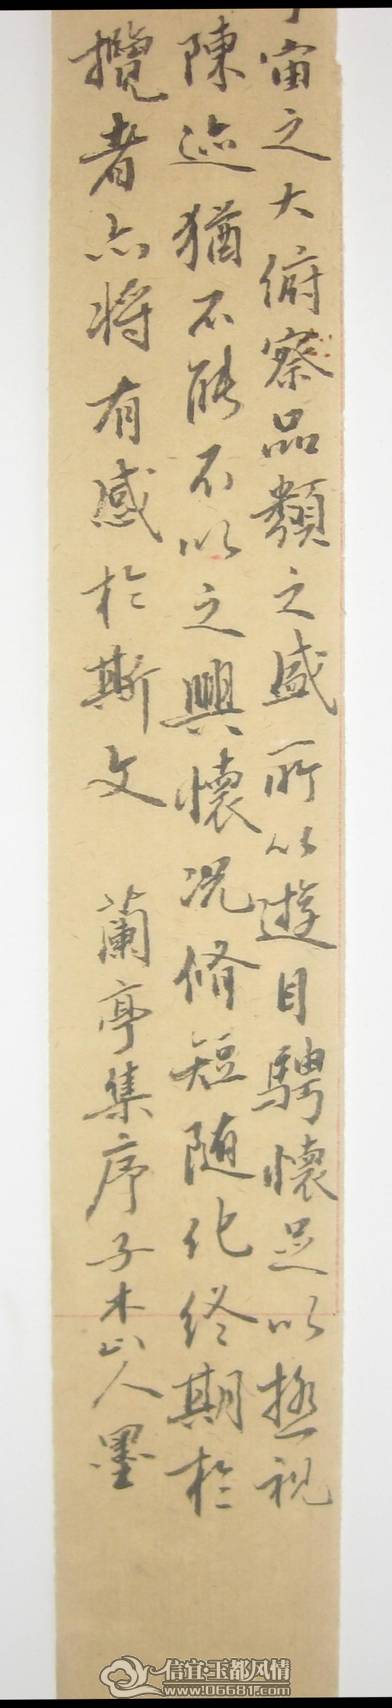 宙之大俯察品類之盛所以遊目騁懷足以極視
陳迹猶不能不以之興懷况脩短随化終期於
攬者亦将有感於斯文 蘭亭集序子木山人墨
信宜·玉都风情
www.06681.com